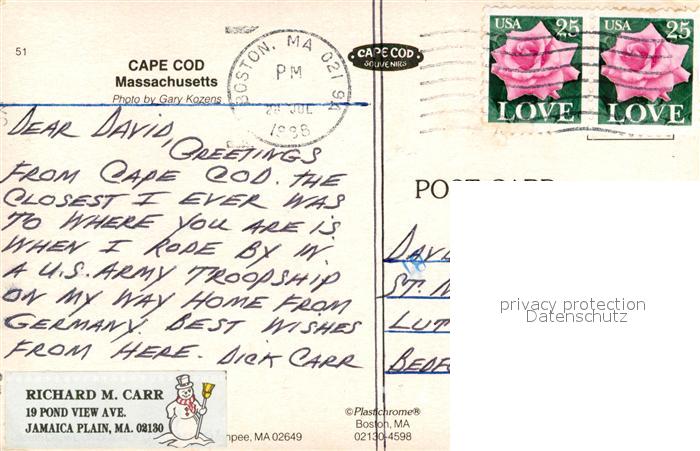 51
CAPE COD
Massachusetts
Photo by Gary Kozens
BOSTON, MA 021 94
PM
JUL
1988
CAPE COD
SOUVENIRS
USA 25
LOVE
USA 25
LOVE
DEAR DAVID,
GREETINGS
FROM CAPE COD. THE
CLOSEST I EVER WAS
TO WHERE YOU ARE IS
WHEN I RODE BY IN
A U.S. ARMY TROOPSHIP
ON MY WAY HOME FROM
GERMANY. BEST WISHES
FROM HERE. DICK CARR
POST CARD
DAV
ST.
LUT
BEDF
privacy protection
Datenschutz
RICHARD M. CARR
19 POND VIEW AVE.
JAMAICA PLAIN, MA. 02130
npee, MA 02649
©Plastichrome®
Boston, MA
02130-4598